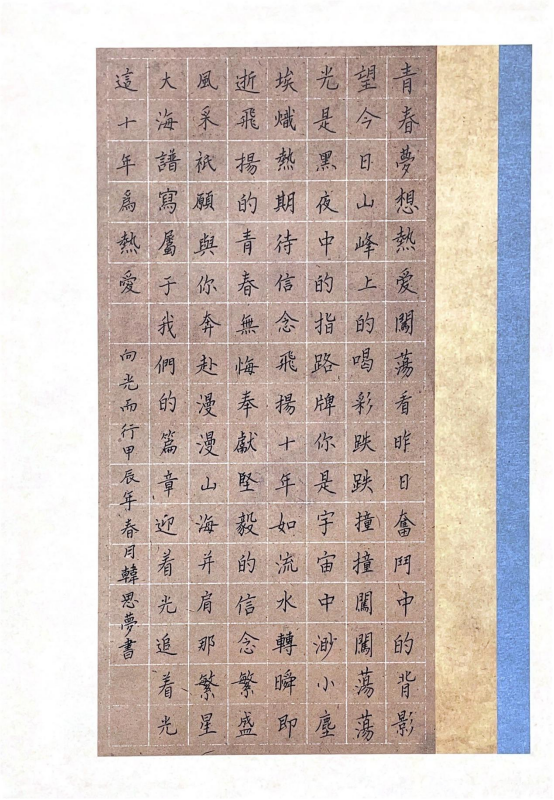 青春夢想熱愛闖蕩看昨日奮鬥中的背影
望今日山峰上的喝彩跌跌撞撞闖闖蕩蕩
光是黑夜中的指路牌你是宇宙中渺小塵
埃熾熱期待信念飛揚十年如流水轉瞬即
逝飛揚的青春無悔奉獻堅毅的信念繁盛
風采祇願與你奔赴漫漫山海并肩那繁星
大海譜寫屬于我們的篇章迎着光追着光
這十年爲熱愛
向光而行甲辰年春月韓思夢書